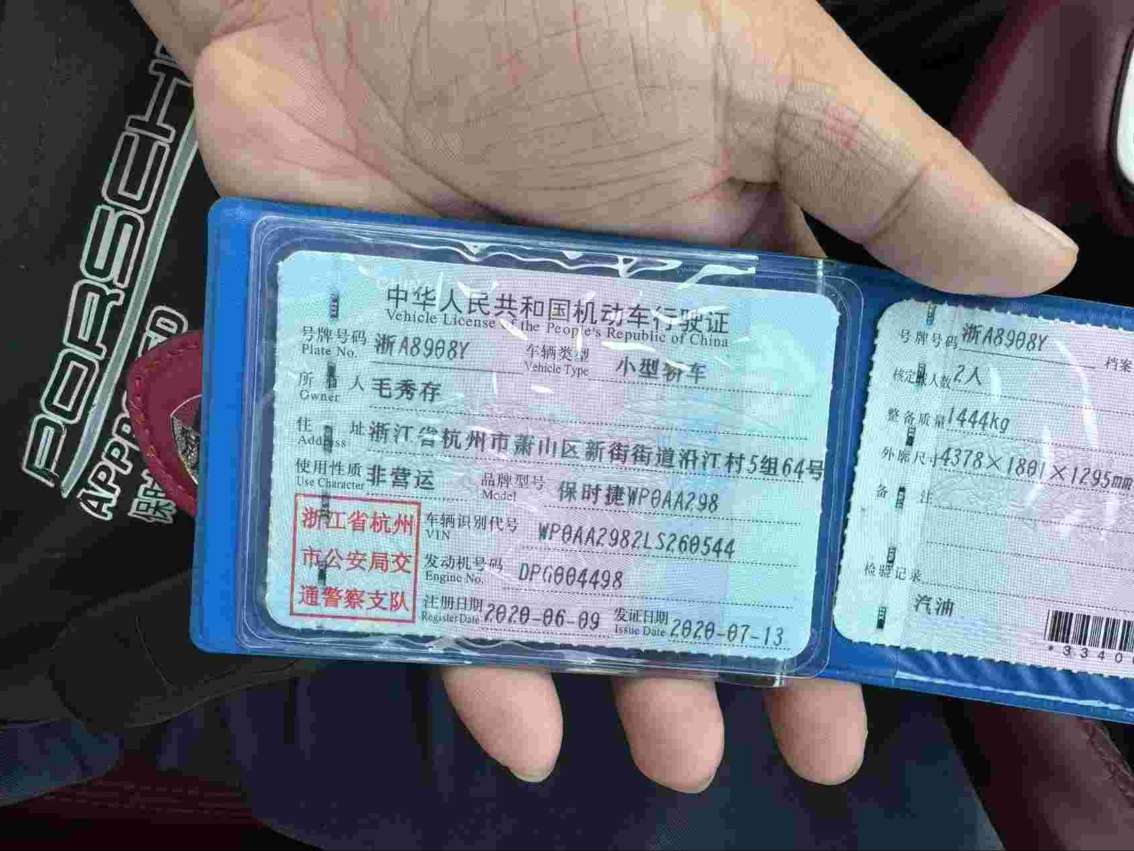 PORSCHE
APPROVED
中华人民共和国机动车行驶证
Vehicle License of the People's Republic of China
号牌号码 浙A8908Y 车辆类型 小型轿车
Plate No. Vehicle Type
所有人 毛秀存
Owner
住址 浙江省杭州市萧山区新街街道沿江村5组64号
Address
使用性质 非营运 品牌型号 保时捷WP0AA298
Use Character Model
浙江省杭州
市公安局交
通警察支队
车辆识别代号 WP0AA2982LS260544
VIN
发动机号码 DPG004498
Engine No.
注册日期 2020-06-09 发证日期 2020-07-13
Register Date Issue Date
号牌号码 浙A8908Y 档案
核定载人数 2人
整备质量 1444kg
外廓尺寸 4378×1801×1295mm
备注
检验记录
汽油
*33400